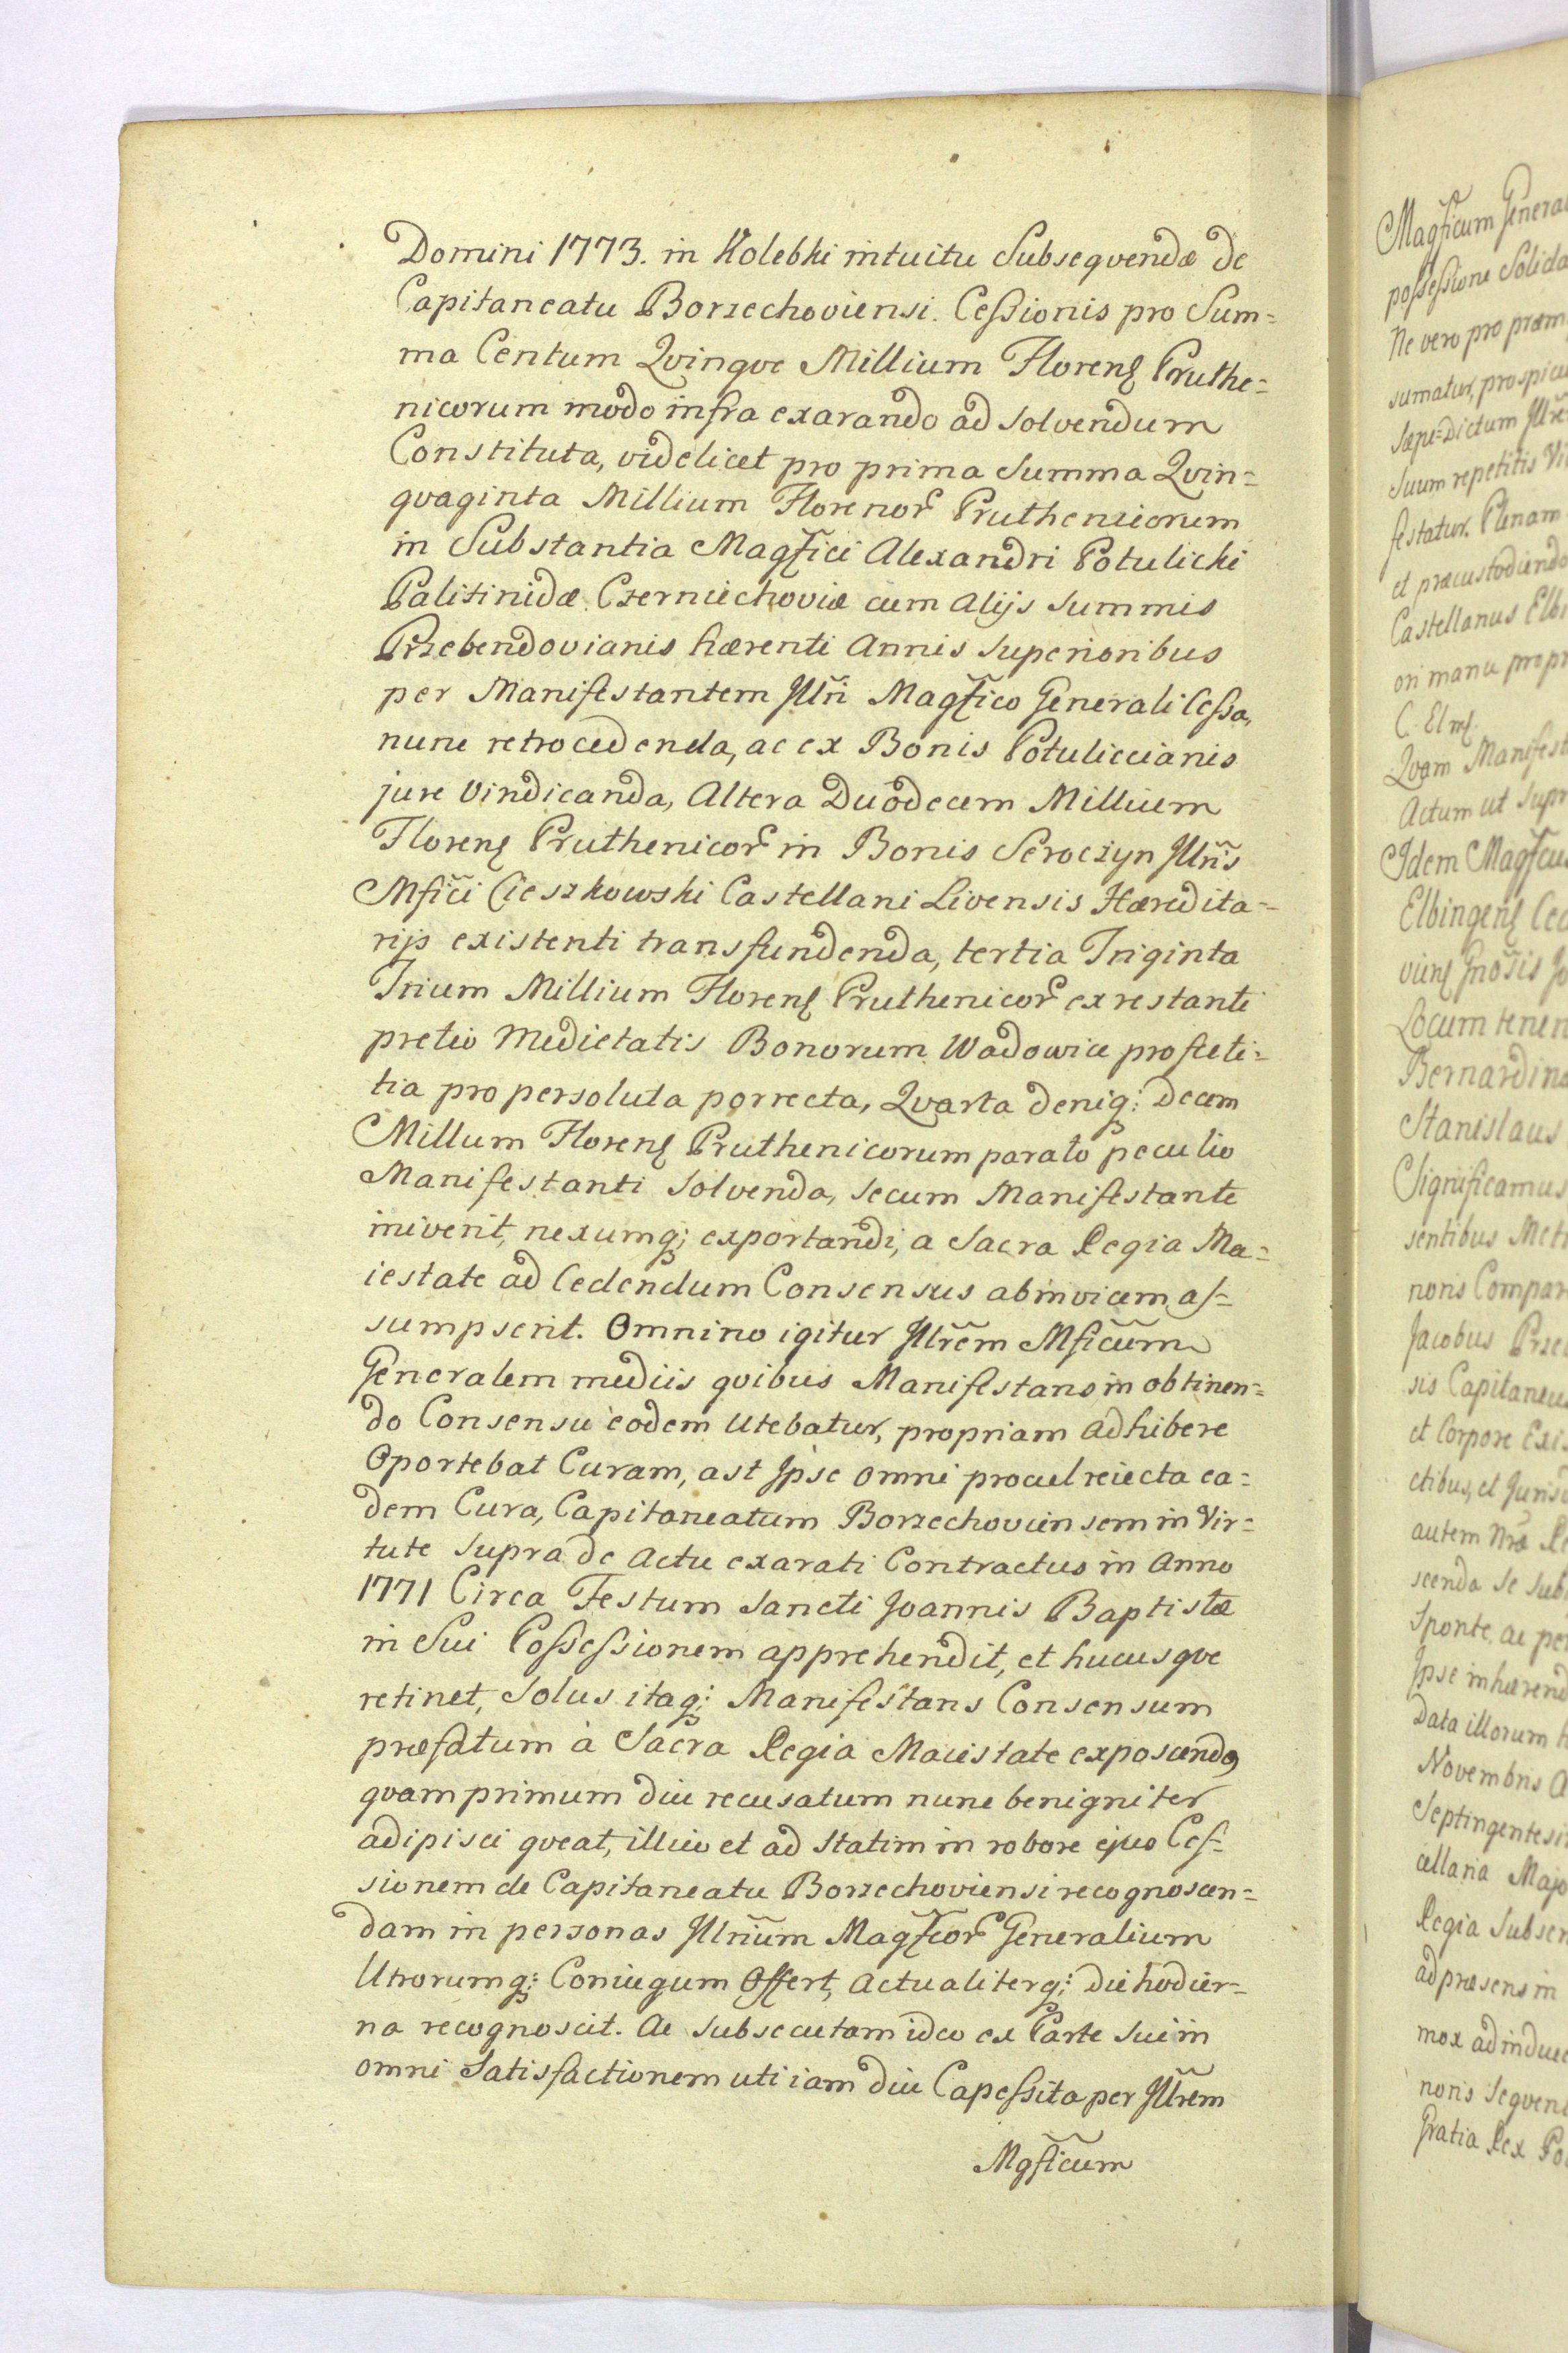 Domini 1773. in Kolebki intuitu Subseqvendæ de
Capitaneatu Borzechoviensi. Ceßionis pro Sum=
ma Centum Qvinqve Millium Floren Pruthe=
nicorum modo infra exarando ad solvendum
Constituta, videlicet pro prima Summa Qvin=
qvaginta Millium Florenor Pruthenicorum
in Substantia Magfici Alexandri Potulicki
Palitinidæ Czerniechoviæ cum alijs summis
Przebendovianis hærenti Annis superioribus
per Manifestantem Jllri Magfico Generali Ceßa,
nunc retrocedenda, ac ex Bonis Potuliccianis
jure vindicanda, Altera Duodecem Millium
Floren Pruthenicor in Bonis Seroczyn Jllris
Mfici Cieszkowski Castellani Livensis Hæredita=
rijs existenti transfundenda, tertia Triginta
Trium Millium Floren Pruthenicor ex restanti
pretio Medietatis Bonorum Wadowice pro fieti=
tia pro persoluta porrecta, Qvarta deniq; Decem
Millum Floren Pruthenicorum parato peculio
Manifestanti solvenda, secum Manifestante
iniverit, nexumq; exportandi, a Sacra Regia Ma=
iestate ad Cedendum Consensus abinvicem as=
sumpserit. Omnino igitur Jllrem Mficum
Generalem mediis qvibus Manifestans in obtinen=
do Consensu eodem Utebatur, propriam adhibere
Oportebat Curam, ast Jpse omni procul reiecta ea=
dem Cura, Capitaneatum Borzechoviensem in Vir=
tute Supra de Actu exarati Contractus in Anno
1771 Circa Festum Sancti Joannis Baptistæ
in Sui Possessionem apprehendit, et hucusqve
retinet, Solus itaq; Manifestans Consensum
præfatum à Sacra Regia Maiestate exposcendo,
qvam primum diu recusatum nunc benigniter
adipisci qveat, illico et ad statim in robore ejus Ces=
sionem de Capitaneatu Borzechoviensi recognoscen=
dam in personas Jllrium Magficor Generalium
Utrorumq; Coniugum Offert, actualiterq; die hodier=
na recognoscit. Ac subsecutam ideo ex Parte sui in
omni Satisfactionem uti iam diu Capeßita per Jllrem
Mgficum
Magficum General
possessione Solida
Ne vero pro præm
sumatur, prospicu
Sæpe=Dictum Jllre
Suum repetitis Vi
festatur. Plenam
et præcustodiendo
Castellanus Elbi
ori manu propr
C. Elm.
Qvam Manifest
Actum ut Supr
Idem Magfcus
Elbingen Cec
vien
Locum tenen
Bernardino
Stanislaus
Significamus
sentibus Met
noris Compar
Jacobus Prze
sis Capitaneus
et Corpore Exis
ctibus, et Jurisd
autem Nræ Re
scenda se sub
Sponte, ac per
Jpse inhærend
Data illorum
Novembris A
Septingentesi
cellaria Majo
Regia Subscr
ad præsens in
mox ad induc
noris seqvent
Gratia Rex Po